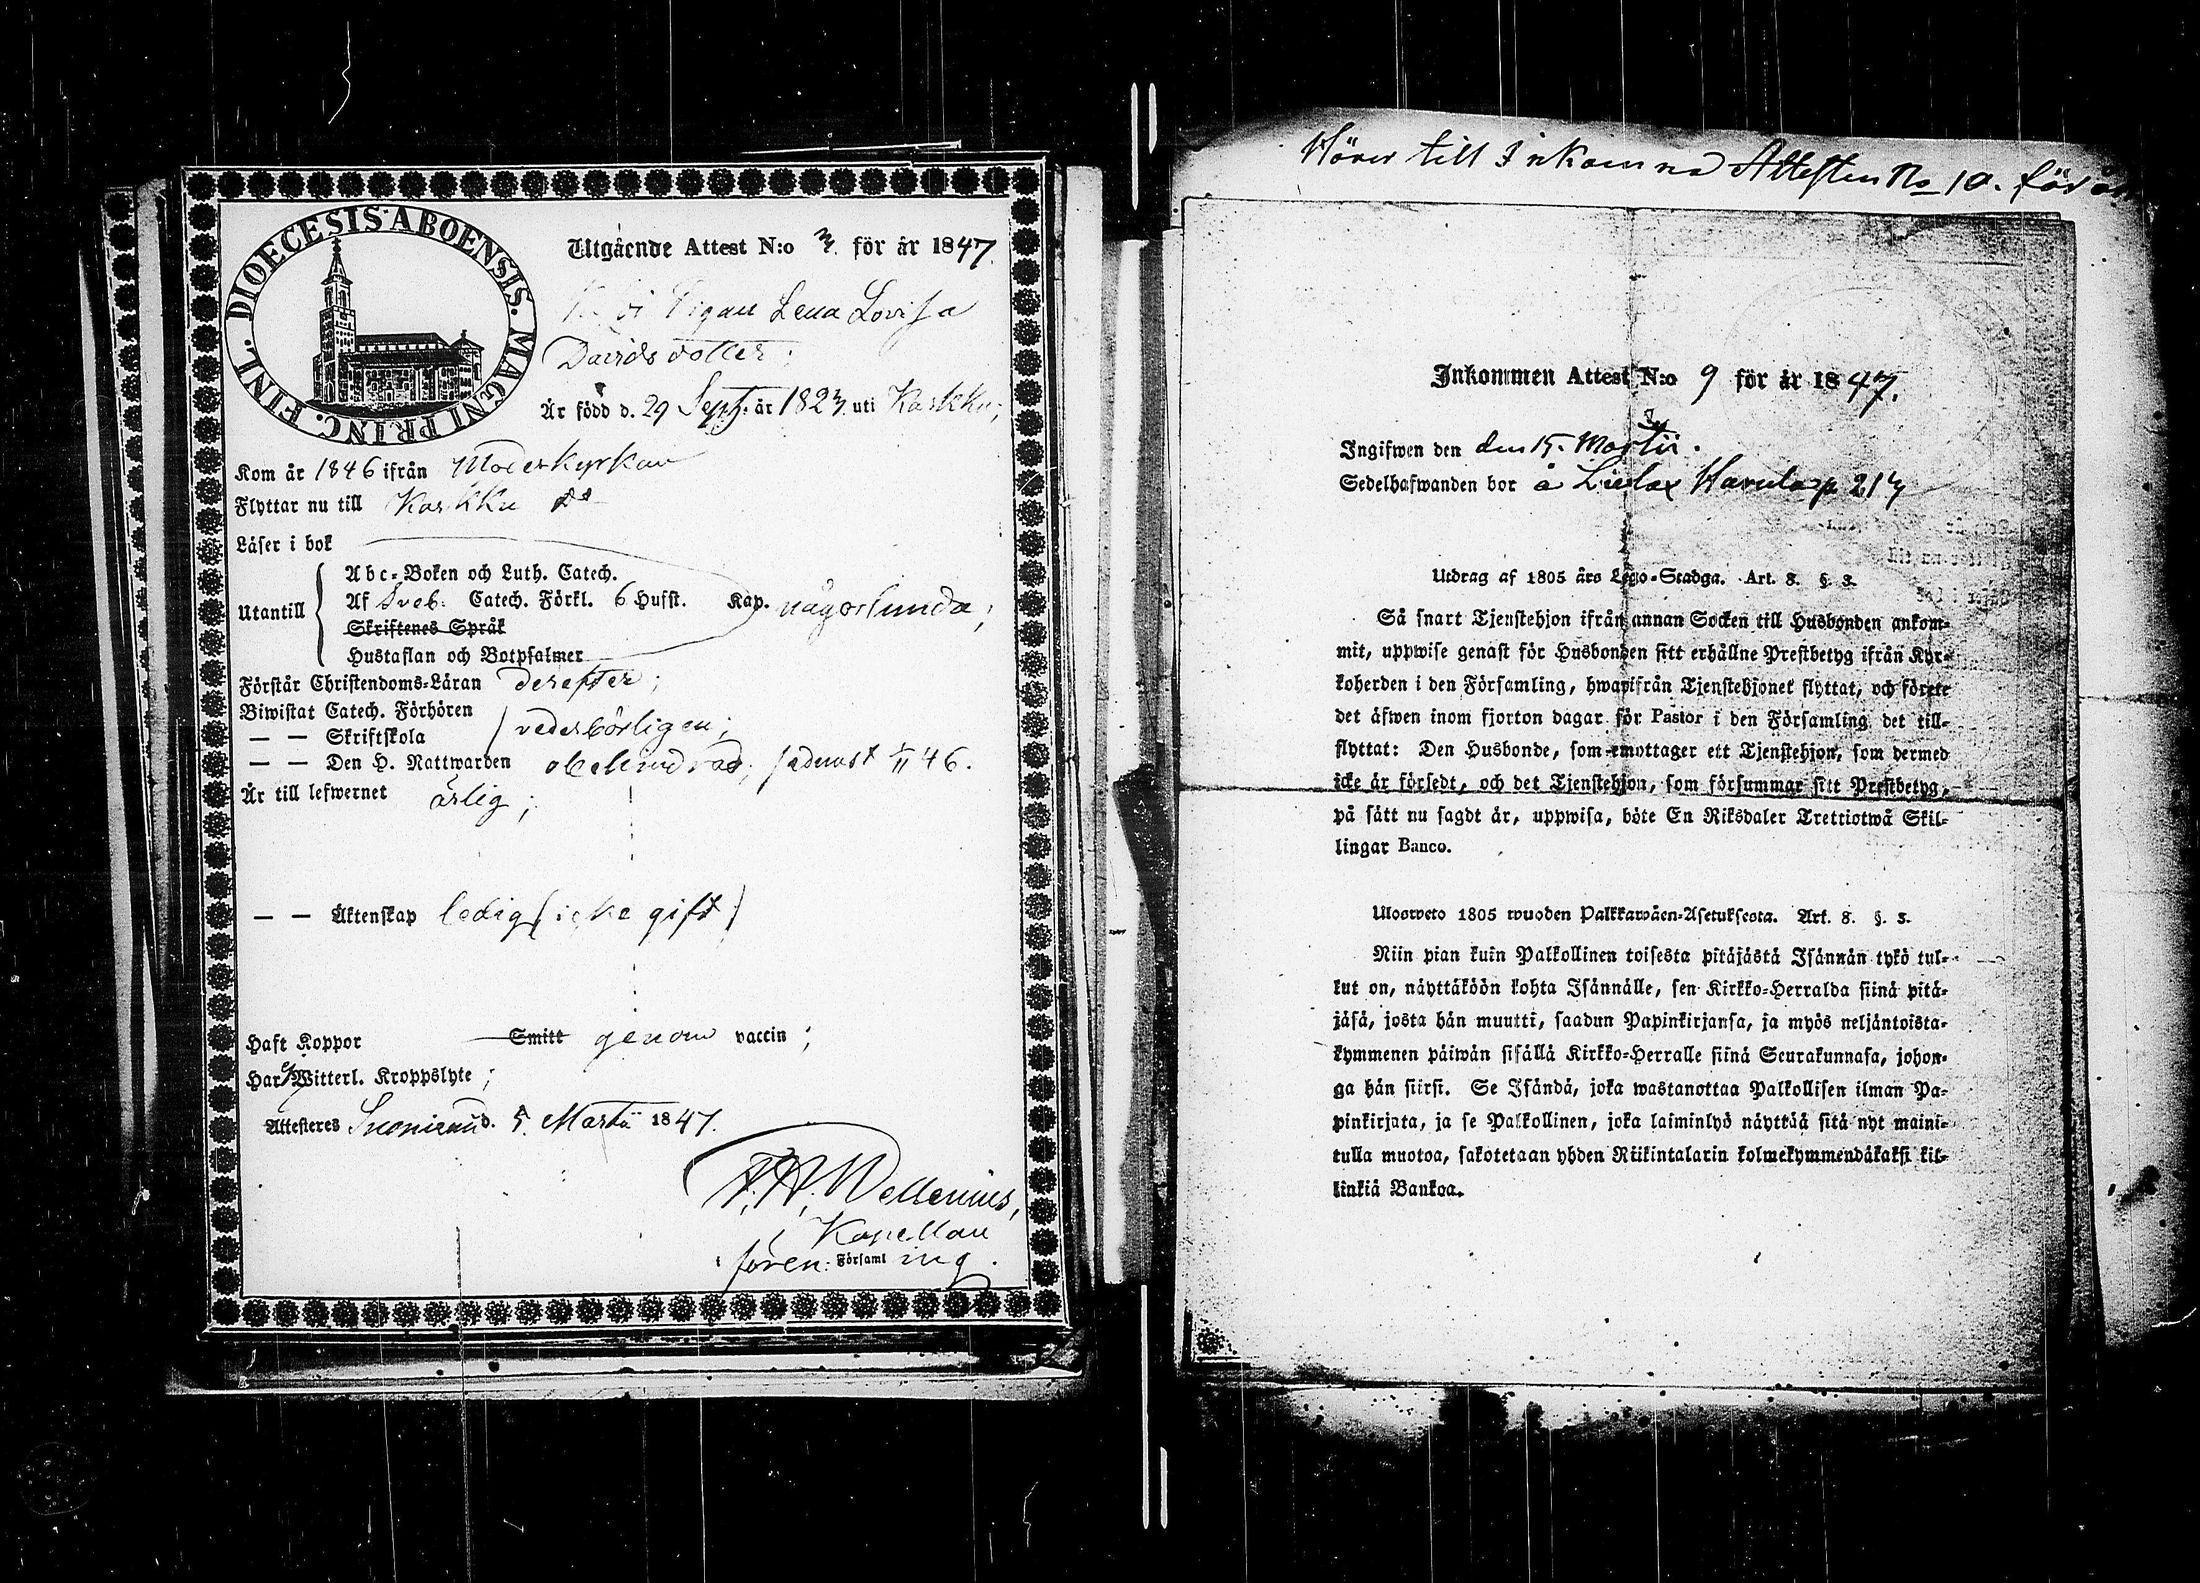 DIOECESIS ABOENSIS. MAGNI PRINC. FINL.
Utgående Attest N:o 3. för år 1847.
Pigan Lena Lovisa
Davidsdotter;
Är född d. 29 Sept: år 1823. uti Karkku;
Kom år 1846 ifrån Moderkyrkan
Flyttar nu till Karkku
Läser i bok
Utantill
Abc-Boken och Luth. Catech.
Af Sveb: Catech. Förkl. 6 Hufst. Kap. någorlunda;
Skriftenes Språk
Hustaflan och Botpsalmer
Förstår Christendoms-Läran derefter;
Biwistat Catech. Förhören
— — Skriftskola vederbörligen;
— — Den H. Nattwarden obehindrad, sednast 46.
Är till lefwernet ärlig;
— — Äktenskap ledig (icke gift)
Haft Koppor Smitt genom vaccin;
Har Witterl. Kroppslyte;
Attesteres Suoniemi d. 5. Martii 1847.
Kapellan
i fören: Församl ing.
Hörer till Inkomna Attesten No 10. för
Inkommen Attest N:o 9 för år 1847.
Ingifwen den den 15. Martii.
Sedelhafwanden bor å
Utdrag af 1805 års Lego-Stadga. Art. 8. §. 3.
Så snart Tjenstehjon ifrån annan Socken till Husbonden ankom-
mit, uppwise genast för Husbonden sitt erhållne Prestbetyg ifrån Kyr-
koherden i den Församling, hwarifrån Tjenstehjonet flyttat, och förete
det äfwen inom fjorton dagar för Pastor i den Församling det till-
flyttat: Den Husbonde, som emottager ett Tjenstehjon, som dermed
icke är försedt, och det Tjenstehjon, som försummar sitt Prestbetyg,
på sätt nu sagdt är, uppwisa, böte En Riksdaler Trettiotwå Skil-
lingar Banco.
Ulosweto 1805 wuoden Palkkawäen-Asetuksesta. Art. 8. §. 3.
Niin pian kuin Palkollinen toisesta pitäjästä Isännän tykö tul-
kut on, näyttäköön kohta Isännälle, sen Kirkko-Herralda siinä pitä-
jäsä, josta hän muutti, saadun Papinkirjansa, ja myös neljäntoista-
kymmenen päiwän sisällä Kirkko-Herralle siinä Seurakunnasa, johon-
ga hän siirsi. Se Isändä, joka wastanottaa Palkollisen ilman Pa-
pinkirjata, ja se Palkollinen, joka laiminlyö näyttää sitä nyt maini-
tulla muotoa, sakotetaan yhden Riikintalarin kolmekymmendäkaksi kil-
linkiä Bankoa.